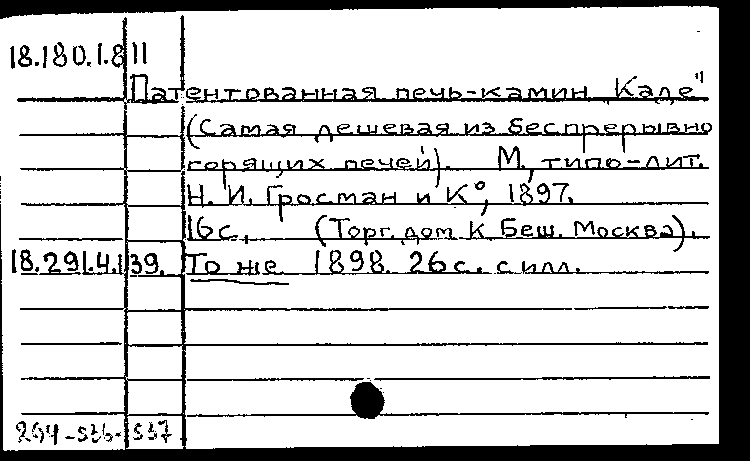 18.180.1.811
Патентованная печь-камин „Каде"
(Самая дешевая из беспрерывно
горящих печей). М., типо-лит.
Н. И. Гросман и К°, 1897.
16 с., (Торг. дом К. Беш. Москва).
18.291.4.139. То же 1898. 26 с. с илл.
204-536-537